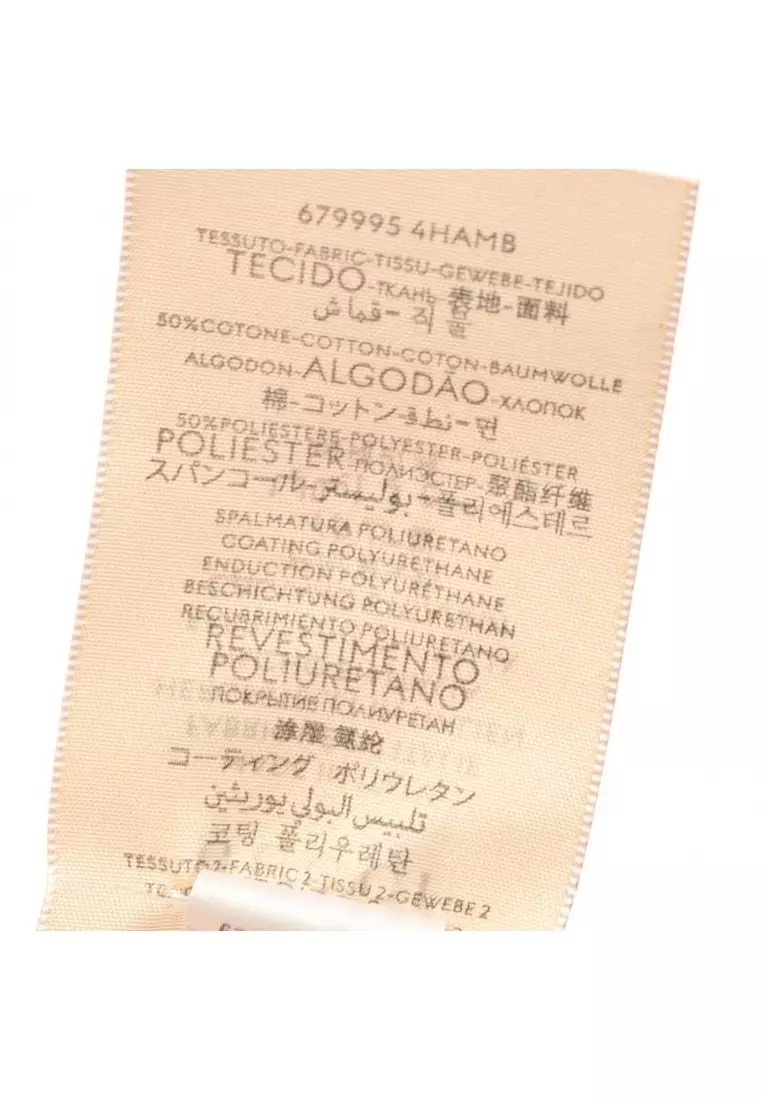 679995 4HAMB
TESSUTO-FABRIC-TISSU-GEWEBE-TEJIDO
TECIDO-ТКАНЬ 表地-面料
قماش-직물
50%COTONE-COTTON-COTON-BAUMWOLLE
ALGODON-ALGODÃO-ХЛОПОК
棉-コットン-قطن-면
50%POLIESTERE-POLYESTER-POLIÉSTER
POLIÉSTER-ПОЛИЭСТЕР-聚酯纤维
スパンコール-بوليستر-폴리에스테르
SPALMATURA POLIURETANO
COATING POLYURETHANE
ENDUCTION POLYURÉTHANE
BESCHICHTUNG POLYURETHAN
RECUBRIMIENTO POLIURETANO
REVESTIMENTO
POLIURETANO
ПОКРЫТИЕ ПОЛИУРЕТАН
涂层 氨纶
コーティング ポリウレタン
تلبيس البولي يوريثين
코팅 폴리우레탄
TESSUTO 2-FABRIC 2-TISSU 2-GEWEBE 2